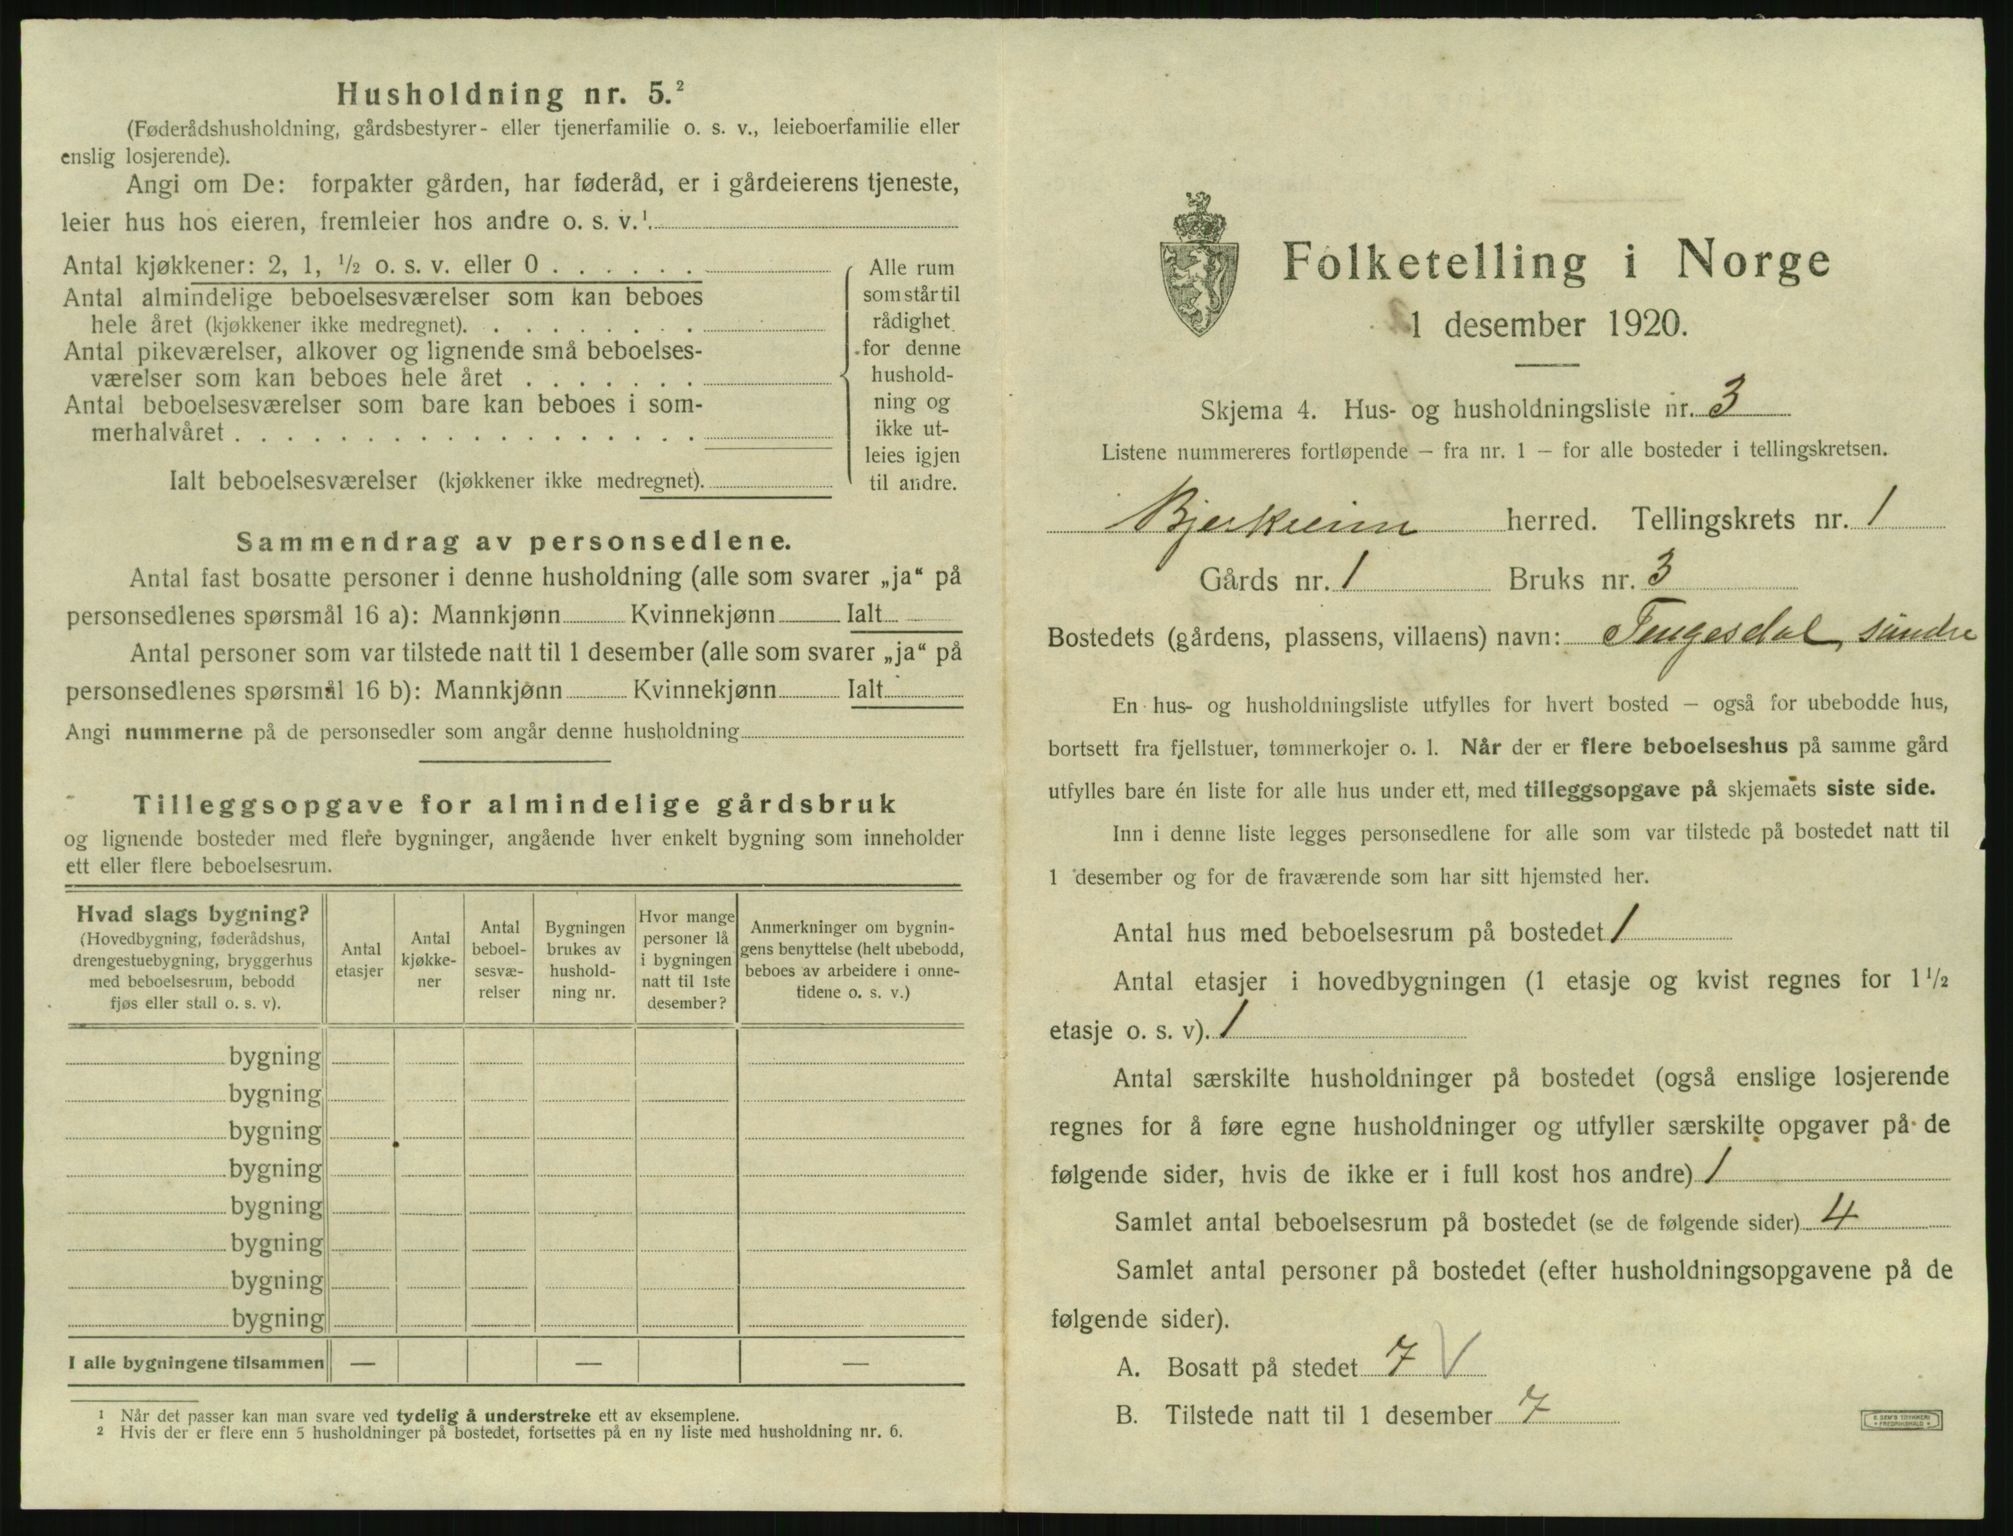 Husholdning nr. 5.²
(Føderådshusholdning, gårdsbestyrer- eller tjenerfamilie o. s. v., leieboerfamilie eller
enslig losjerende).
Angi om De: forpakter gården, har føderåd, er i gårdeierens tjeneste,
leier hus hos eieren, fremleier hos andre o. s. v.¹
Antal kjøkkener: 2, 1, ½ o. s. v. eller 0 . . . . . .
Antal almindelige beboelsesværelser som kan beboes
hele året (kjøkkener ikke medregnet). . . . . . . . . .
Antal pikeværelser, alkover og lignende små beboelses-
værelser som kan beboes hele året . . . . . . .
Antal beboelsesværelser som bare kan beboes i som-
merhalvåret . . . . . . . . . . . . . . . . . .
Ialt beboelsesværelser (kjøkkener ikke medregnet).
Alle rum
som står til
rådighet
for denne
hushold-
ning og
ikke ut-
leies igjen
til andre.
Sammendrag av personsedlene.
Antal fast bosatte personer i denne husholdning (alle som svarer „ja“ på
personsedlenes spørsmål 16 a): Mannkjønn Kvinnekjønn Ialt
Antal personer som var tilstede natt til 1 desember (alle som svarer „ja“ på
personsedlenes spørsmål 16 b): Mannkjønn Kvinnekjønn Ialt
Angi nummerne på de personsedler som angår denne husholdning
Tilleggsopgave for almindelige gårdsbruk
og lignende bosteder med flere bygninger, angående hver enkelt bygning som inneholder
ett eller flere beboelsesrum.
Hvad slags bygning?
(Hovedbygning, føderådshus,
drengestuebygning, bryggerhus
med beboelsesrum, bebodd
fjøs eller stall o. s. v).
Antal
etasjer
Antal
kjøkke-
ner
Antal
beboel-
sesvæ-
relser
Bygningen
brukes av
hushold-
ning nr.
Hvor mange
personer lå
i bygningen
natt til 1ste
desember?
Anmerkninger om bygnin-
gens benyttelse (helt ubebodd,
beboes av arbeidere i onne-
tidene o. s. v.)
bygning
bygning
bygning
bygning
bygning
bygning
bygning
bygning
I alle bygningene tilsammen — — —
¹ Når det passer kan man svare ved tydelig å understreke ett av eksemplene.
² Hvis der er flere enn 5 husholdninger på bostedet, fortsettes på en ny liste med husholdning nr. 6.
Folketelling i Norge
1 desember 1920.
Skjema 4. Hus- og husholdningsliste nr. 3
Listene nummereres fortløpende – fra nr. 1 – for alle bosteder i tellingskretsen.
Bjerkreim herred. Tellingskrets nr. 1
Gårds nr. 1 Bruks nr. 3
Bostedets (gårdens, plassens, villaens) navn: Tengesdal, søndre
En hus- og husholdningsliste utfylles for hvert bosted – også for ubebodde hus,
bortsett fra fjellstuer, tømmerkojer o. l. Når der er flere beboelseshus på samme gård
utfylles bare én liste for alle hus under ett, med tilleggsopgave på skjemaets siste side.
Inn i denne liste legges personsedlene for alle som var tilstede på bostedet natt til
1 desember og for de fraværende som har sitt hjemsted her.
Antal hus med beboelsesrum på bostedet 1
Antal etasjer i hovedbygningen (1 etasje og kvist regnes for 1½
etasje o. s. v). 1
Antal særskilte husholdninger på bostedet (også enslige losjerende
regnes for å føre egne husholdninger og utfyller særskilte opgaver på de
følgende sider, hvis de ikke er i full kost hos andre) 1
Samlet antal beboelsesrum på bostedet (se de følgende sider) 4
Samlet antal personer på bostedet (efter husholdningsopgavene på de
følgende sider).
A. Bosatt på stedet 7 V
B. Tilstede natt til 1 desember 7
E. SEM'S TRYKKERI
FREDRIKSHALD